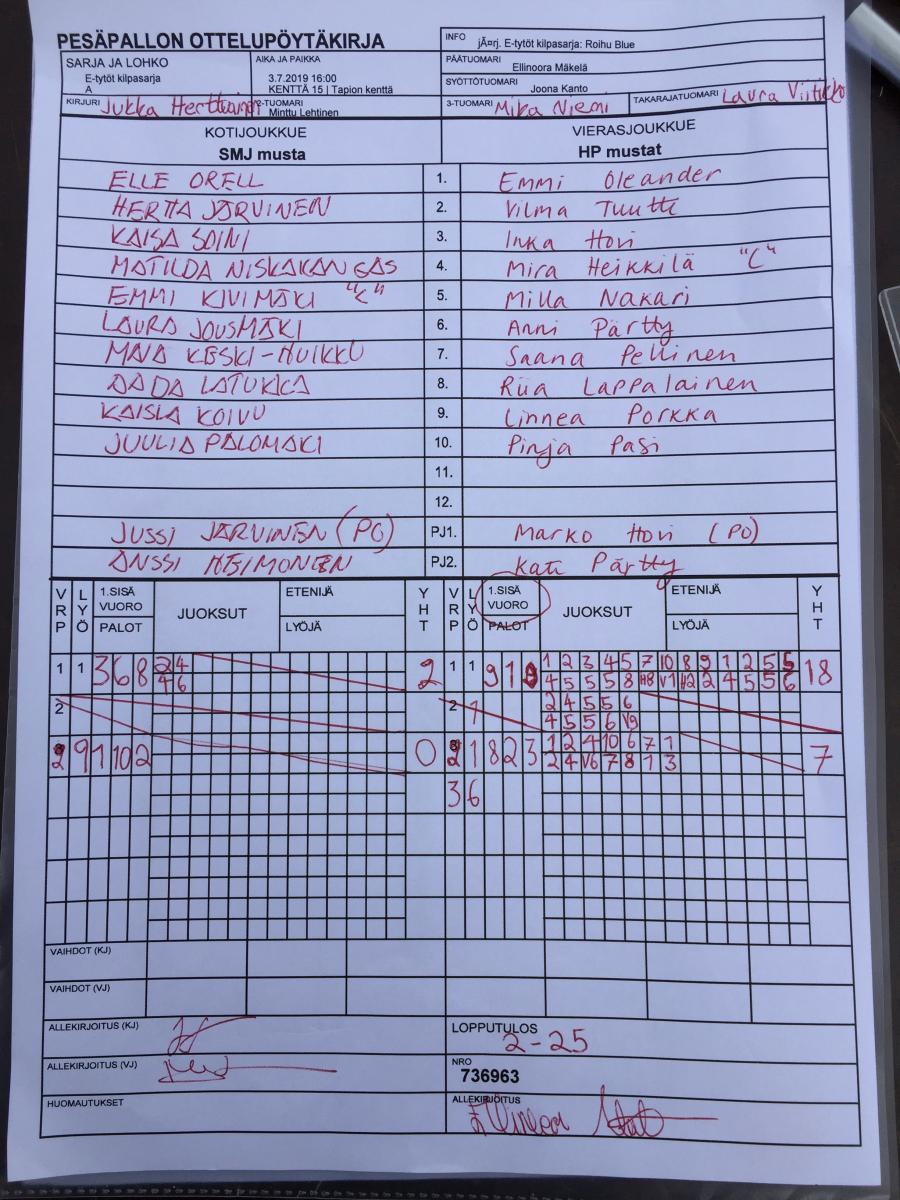 PESÄPALLON OTTELUPÖYTÄKIRJA
INFO jÃ¤rj. E-tytöt kilpasarja: Roihu Blue
SARJA JA LOHKO
E-tytöt kilpasarja
A
AIKA JA PAIKKA
3.7.2019 16:00
KENTTÄ 15 | Tapion kenttä
PÄÄTUOMARI
Ellinoora Mäkelä
SYÖTTÖTUOMARI
Joona Kanto
KIRJURI Jukka Herttuainen
2-TUOMARI Minttu Lehtinen
3-TUOMARI Mika Niemi
TAKARAJATUOMARI Laura Viitikko
KOTIJOUKKUE VIERASJOUKKUE
SMJ musta HP mustat
ELLE ORELL 1. Emmi Oleander
HERTTA JÄRVINEN 2. Vilma Tuutti
KAISA SOINI 3. Inka Hovi
MATILDA NISKAKANGAS 4. Mira Heikkilä "C"
EMMI KIVIMÄKI "C" 5. Milla Nakari
LAURA JOUSMÄKI 6. Anni Pärtty
MAIA KESKI-HUIKKU 7. Saana Pellinen
DADA LATUKKA 8. Riia Lappalainen
KAISLA KOIVU 9. Linnea Porkka
JUULIA PALOMÄKI 10. Pinja Pasi
11.
12.
JUSSI JÄRVINEN (PO) PJ1. Marko Hovi (PO)
ANSSI HEIMONEN PJ2. Kati Pärtty
VRP LYÖ 1.SISÄ VUORO PALOT JUOKSUT ETENIJÄ LYÖJÄ YHT VRP LYÖ 1.SISÄ VUORO PALOT JUOKSUT ETENIJÄ LYÖJÄ YHT
1 1 3 6 8 2 4 2 1 1 9 1 1 2 3 4 5 7 10 8 9 1 2 5 5 18
4 6 4 5 5 5 8 H8 V1 H2 2 4 5 5 6
2 2 1 2 4 5 5 6
4 5 5 6 V9
2 9 1 10 2 0 2 1 8 2 3 1 2 4 10 6 7 1 7
2 4 V6 7 8 1 3
3 6
VAIHDOT (KJ)
VAIHDOT (VJ)
ALLEKIRJOITUS (KJ)
LOPPUTULOS
2-25
ALLEKIRJOITUS (VJ)
NRO
736963
HUOMAUTUKSET
ALLEKIRJOITUS